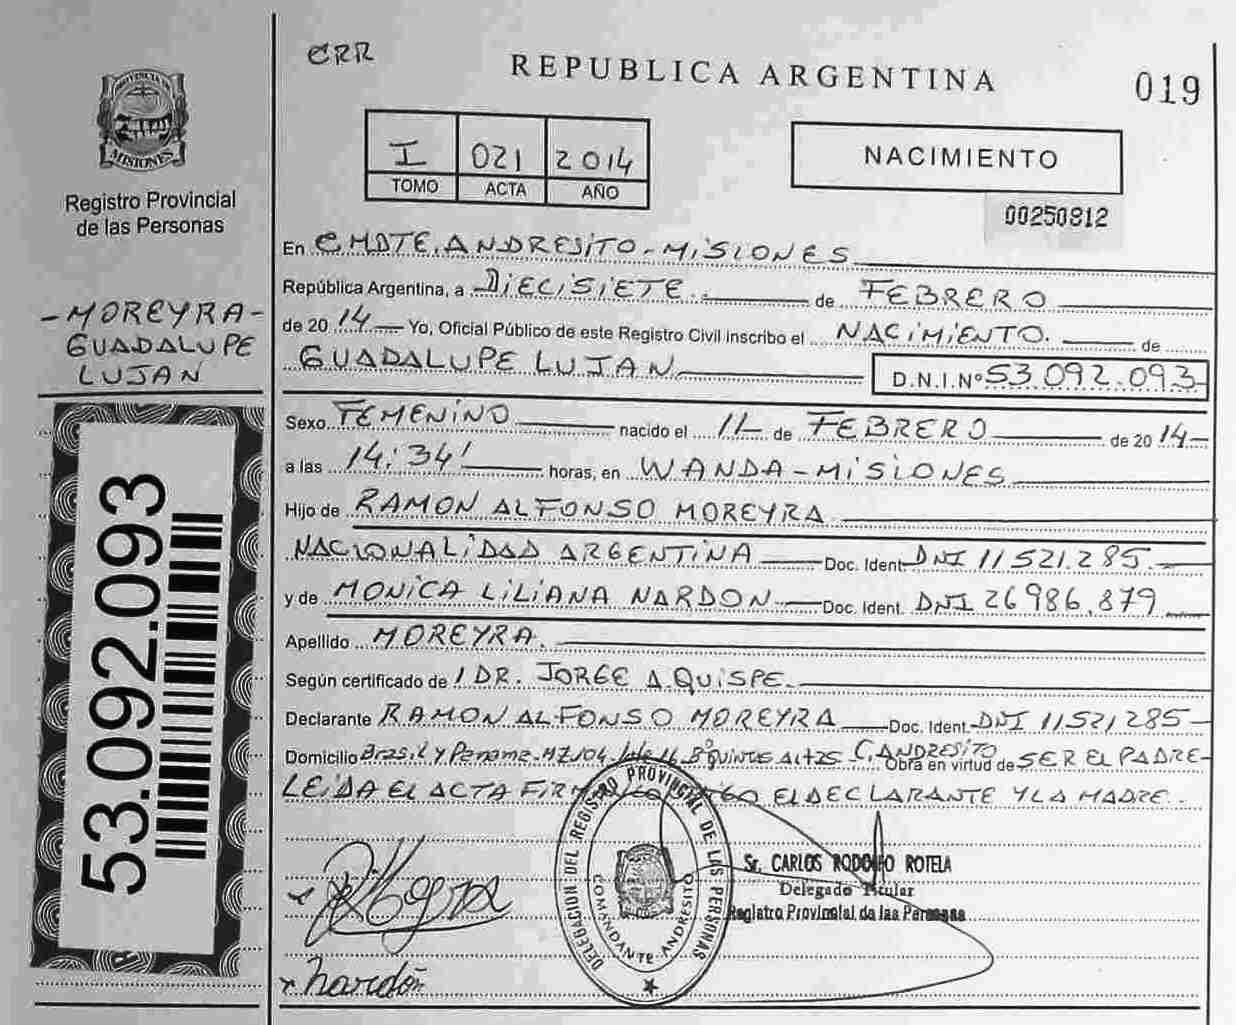 CRR
REPUBLICA ARGENTINA
019
PROVINCIA DE
MISIONES
Registro Provincial
de las Personas
I 021 2014
TOMO ACTA AÑO
NACIMIENTO
00250812
En CMDTE. ANDRESITO - MISIONES
República Argentina, a DIECISIETE de FEBRERO
de 20 14 Yo, Oficial Público de este Registro Civil inscribo el NACIMIENTO. de
GUADALUPE LUJAN D.N.I.Nº 53.092.093
- MOREYRA -
GUADALUPE
LUJAN
Sexo FEMENINO nacido el 11 de FEBRERO de 20 14
a las 14:34' horas, en WANDA - MISIONES
Hijo de RAMON ALFONSO MOREYRA
NACIONALIDAD ARGENTINA Doc. Ident. DNI 11521.285.
y de MONICA LILIANA NARDON Doc. Ident. DNI 26986.879
Apellido MOREYRA.
Según certificado de DR. JORGE A. QUISPE.
Declarante RAMON ALFONSO MOREYRA Doc. Ident. DNI 11521285
Domicilio Brasil y Panama. MZ 104 Lote 11 Bº QUINTAS ALTAS C. ANDRESITO Obra en virtud de SER EL PADRE -
LEIDA EL ACTA FIRMA EL DECLARANTE Y LA MADRE.
53.092.093
DELEGACION DEL REGISTRO PROVINCIAL DE LAS PERSONAS
COMANDANTE ANDRESITO
Sr. CARLOS RODOLFO ROTELA
Delegado Titular
Registro Provincial de las Personas
Nardón